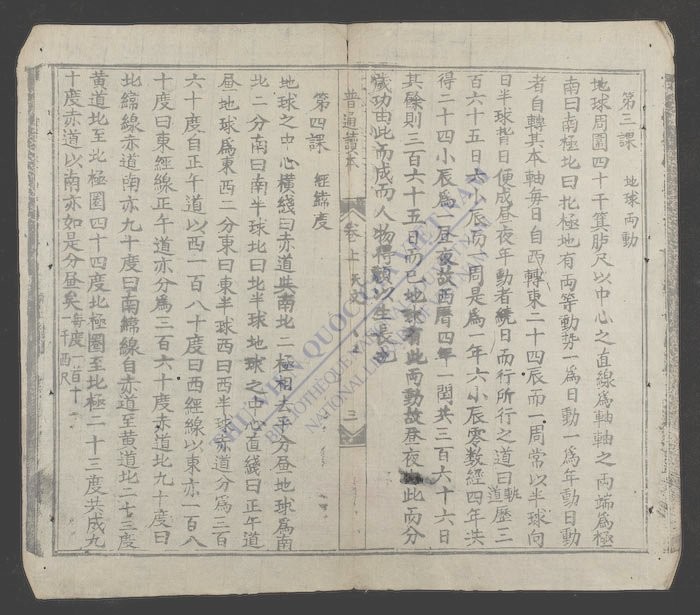 第三課　地球两動
地球周圍四十千箕𦙫尺以中心之直線爲軸軸之两端爲極
南曰南極北曰北極地有两等動勢一爲日動一爲年動日動
者自轉其本軸每日自西轉東二十四辰而一周常以半球向
日半球背日便成昼夜年動者繞日而行所行之道曰軌道歷三
百六十五日六小辰而一周是爲一年六小辰零数經四年洪
得二十四小辰爲一昼夜故西曆四年一閏共三百六十六日
其餘則三百六十五日而已地球有此两動故昼夜由此而分
歲功由此而成而人物得類以生長也
普通讀本
卷上 天文
三
第四課　經緯度
地球之中心橫綫曰赤道與南北二極相去平分昼地球爲南
北二分南曰南半球北曰北半球地球之中心直綫曰正午道
昼地球爲東西二分東曰東半球西曰西半球赤道分爲三百
六十度自正午道以西一百八十度曰西經線以東亦一百八
十度曰東經線正午道亦分爲三百六十度赤道北九十度曰
北緯線赤道南亦九十度曰南緯線自赤道至黄道北二十三度
黄道北至北極圈四十四度北極圈至北極二十三度共成九
十度赤道以南亦如是分昼矣每度一百十一千西尺
THƯ VIỆN QUỐC GIA VIỆT NAM
BIBLIOTHÈQUE NATIONALE DU VIETNAM
NATIONAL LIBRARY OF VIETNAM